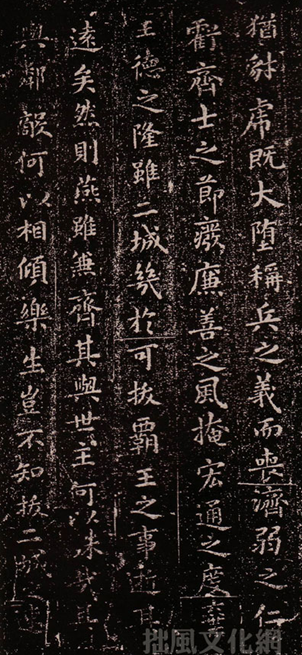 猶豺虎既大墮稱兵之義而喪濟弱之仁
虧齊士之節廢廉善之風掩宏通之度棄
王德之隆雖二城幾於可拔霸王之事逝其
遠矣然則燕雖兼齊其與世主何以殊哉其
與鄰敵何以相傾樂生豈不知拔二城之速
拙風文化網